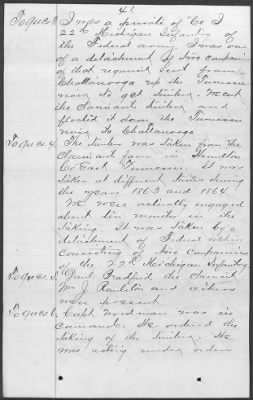 41.
To ques 3 I was a private of Co I
22nd Michigan Infantry of
the Federal army. I was one
of a detachment of two companies
of that regiment sent from
Chattanooga up the Tennessee
river to get timber. We cut
the Claimants timber and
floated it down the Tennessee
river to Chattanooga
To ques 4. The timber was taken from the
Claimant farm in Hamilton
Co East Tennessee. It was
taken at different times during
the years 1863 and 1864.
We were actually engaged
about ten months in the
taking. It was taken by a
detachment of Federal soldiers
consisting of two companies
of the 22d Michigan Infantry
To ques 5. Bradford the Claimant
Wm J Rawlston and others
were present
To ques 6. Capt Woodman was in
command. He ordered the
taking of the timber. He
was acting under orders